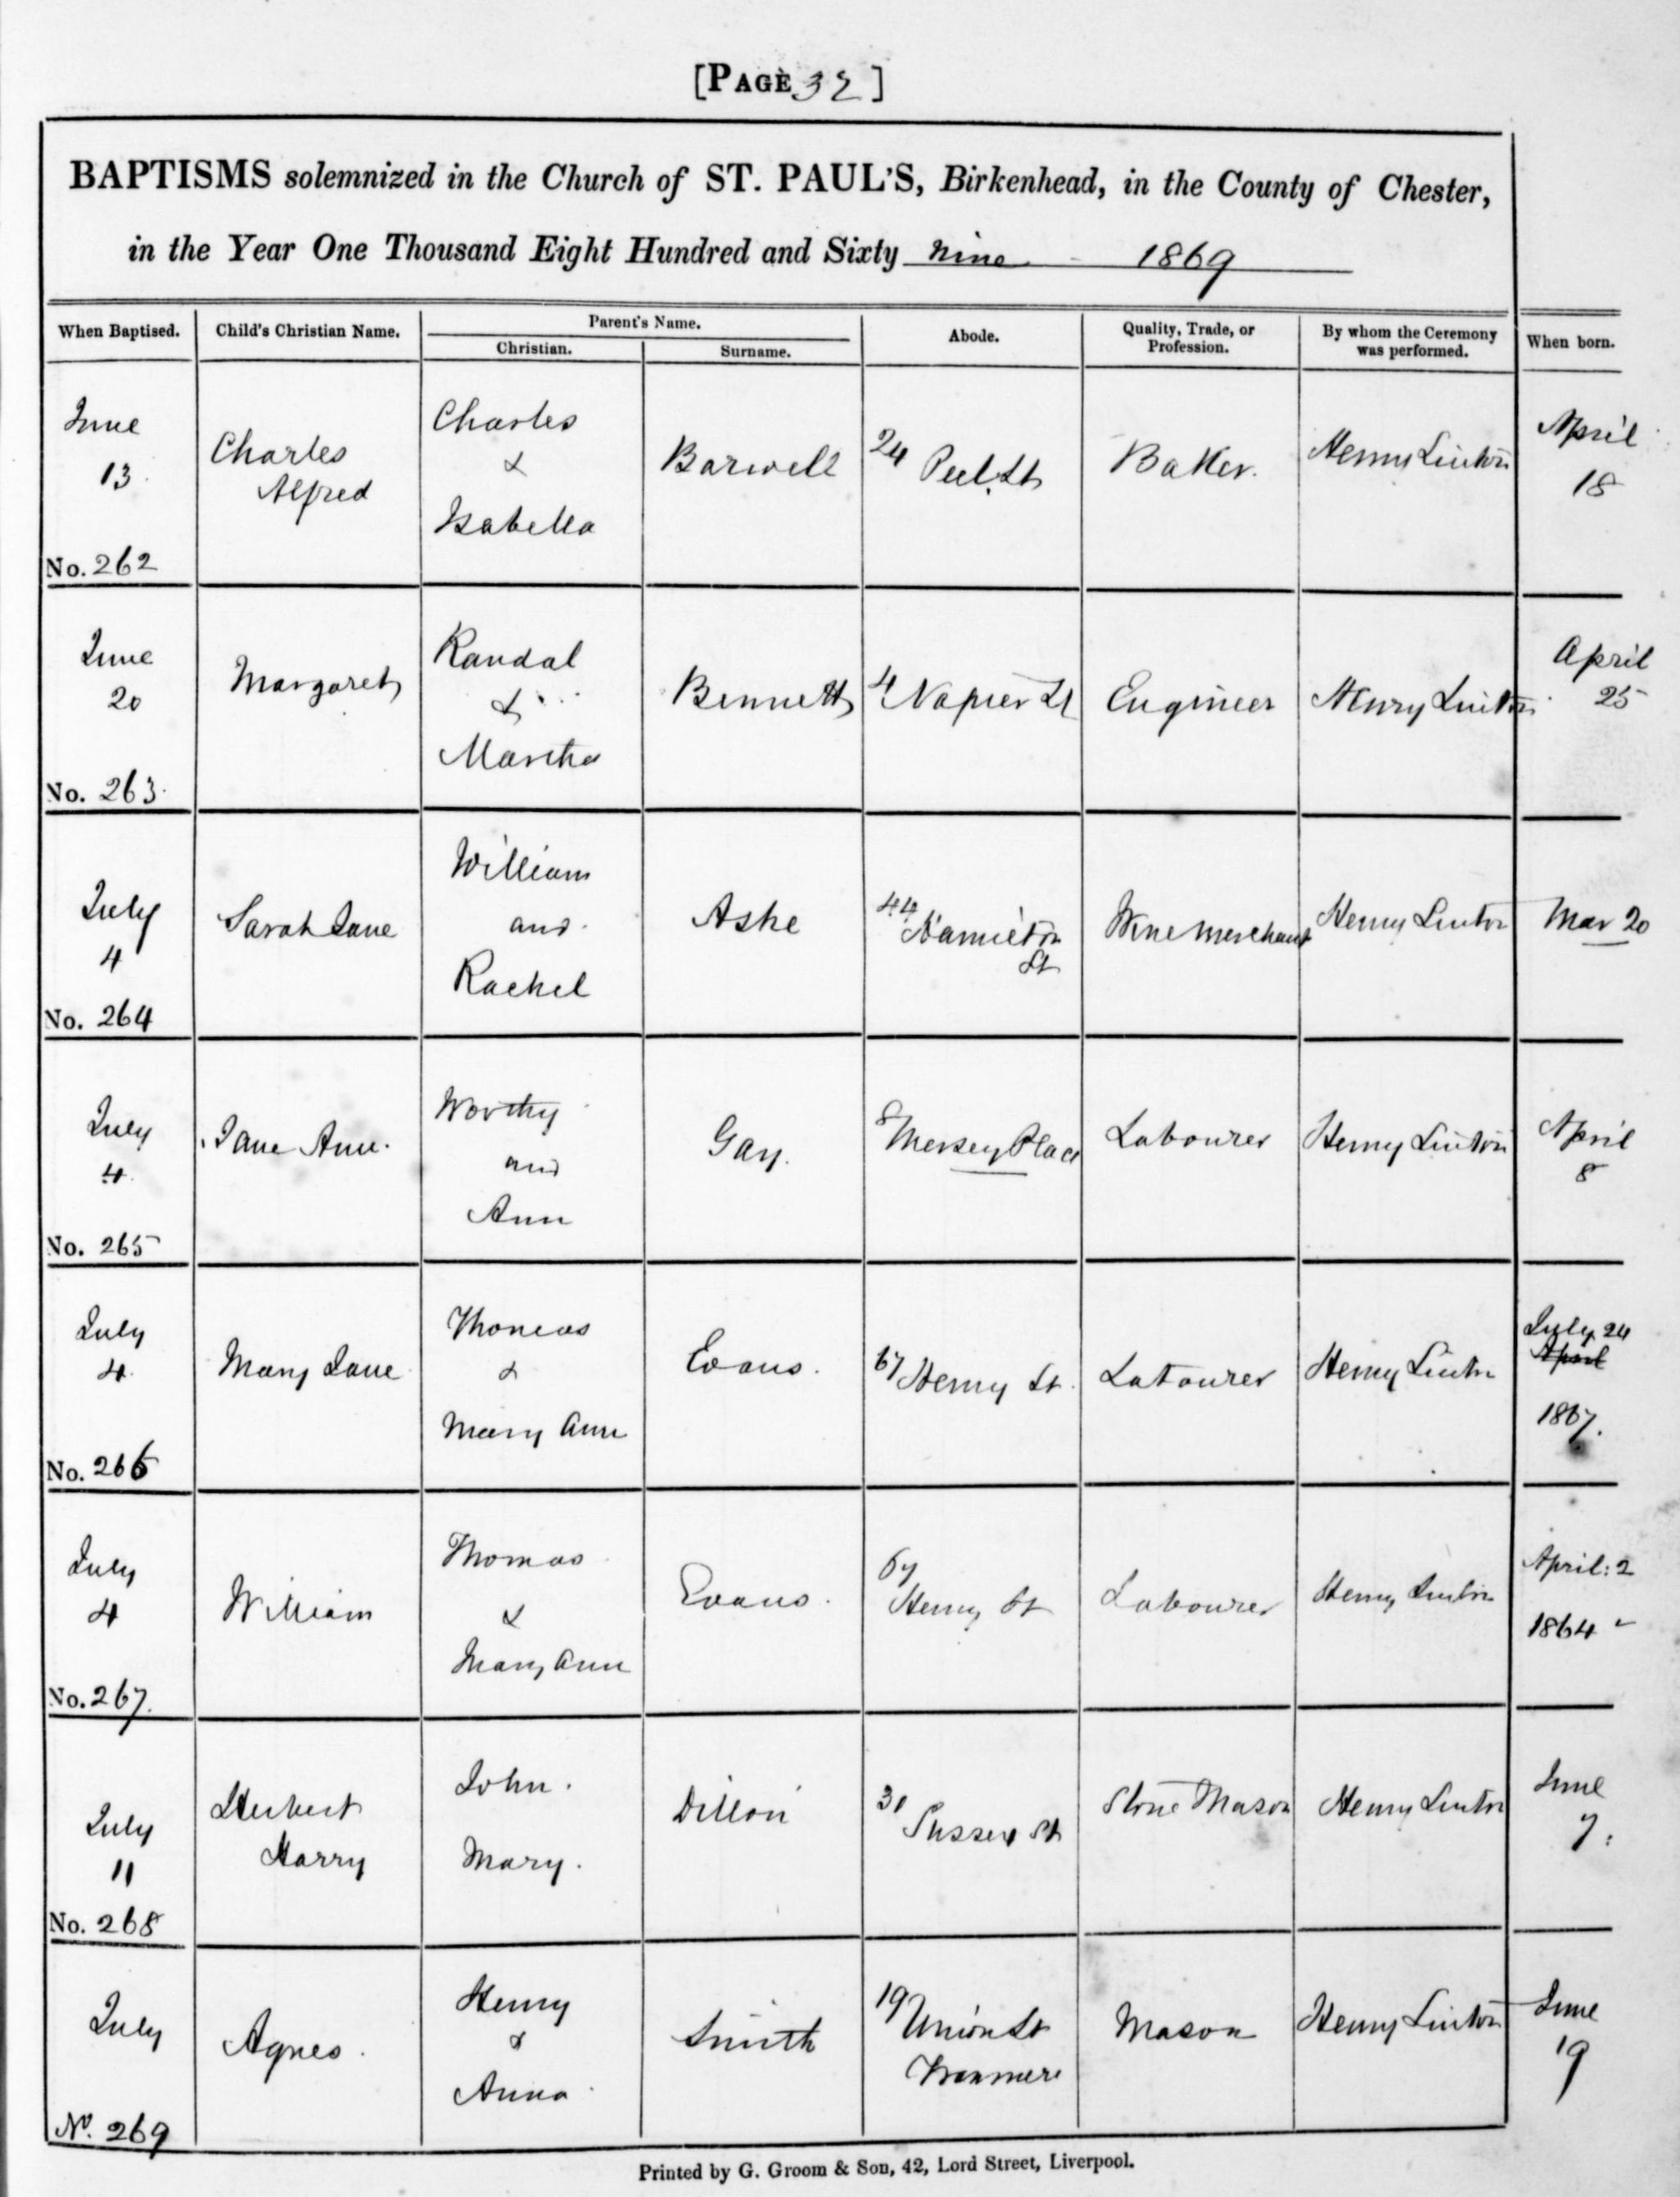 [PAGE 32]
BAPTISMS solemnized in the Church of ST. PAUL'S, Birkenhead, in the County of Chester,
in the Year One Thousand Eight Hundred and Sixty nine 1869
When Baptised. Child's Christian Name. Parent's Name. Abode. Quality, Trade, or Profession. By whom the Ceremony was performed. When born.
Christian. Surname.
June 13 Charles Alfred Charles & Isabella Barwell 24 Peel St Baker. Henry Linton April 18
No. 262
June 20 Margaret Randal & Martha Bennett 4 Napier St Engineer Henry Linton April 25
No. 263
July 4 Sarah Jane William and Rachel Ashe 44 Hamilton St Wine Merchant Henry Linton Mar 20
No. 264
July 4 Jane Ann Worthy and Ann Gay. 8 Mersey Place Labourer Henry Linton April 8
No. 265
July 4 Mary Jane Thomas & Mary Ann Evans. 67 Henry St. Labourer Henry Linton July 24 April 1867.
No. 266
July 4 William Thomas & Mary Ann Evans. 67 Henry St Labourer Henry Linton April: 2 1864
No. 267.
July 11 Herbert Harry John. Mary. Dillon 31 Sussex St Stone Mason Henry Linton June 7:
No. 268
July Agnes. Henry & Anna Smith 19 Union St Tranmere Mason Henry Linton June 19
No. 269
Printed by G. Groom & Son, 42, Lord Street, Liverpool.